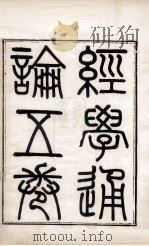 經學通
論五卷
mtoou.info
mtoou.info